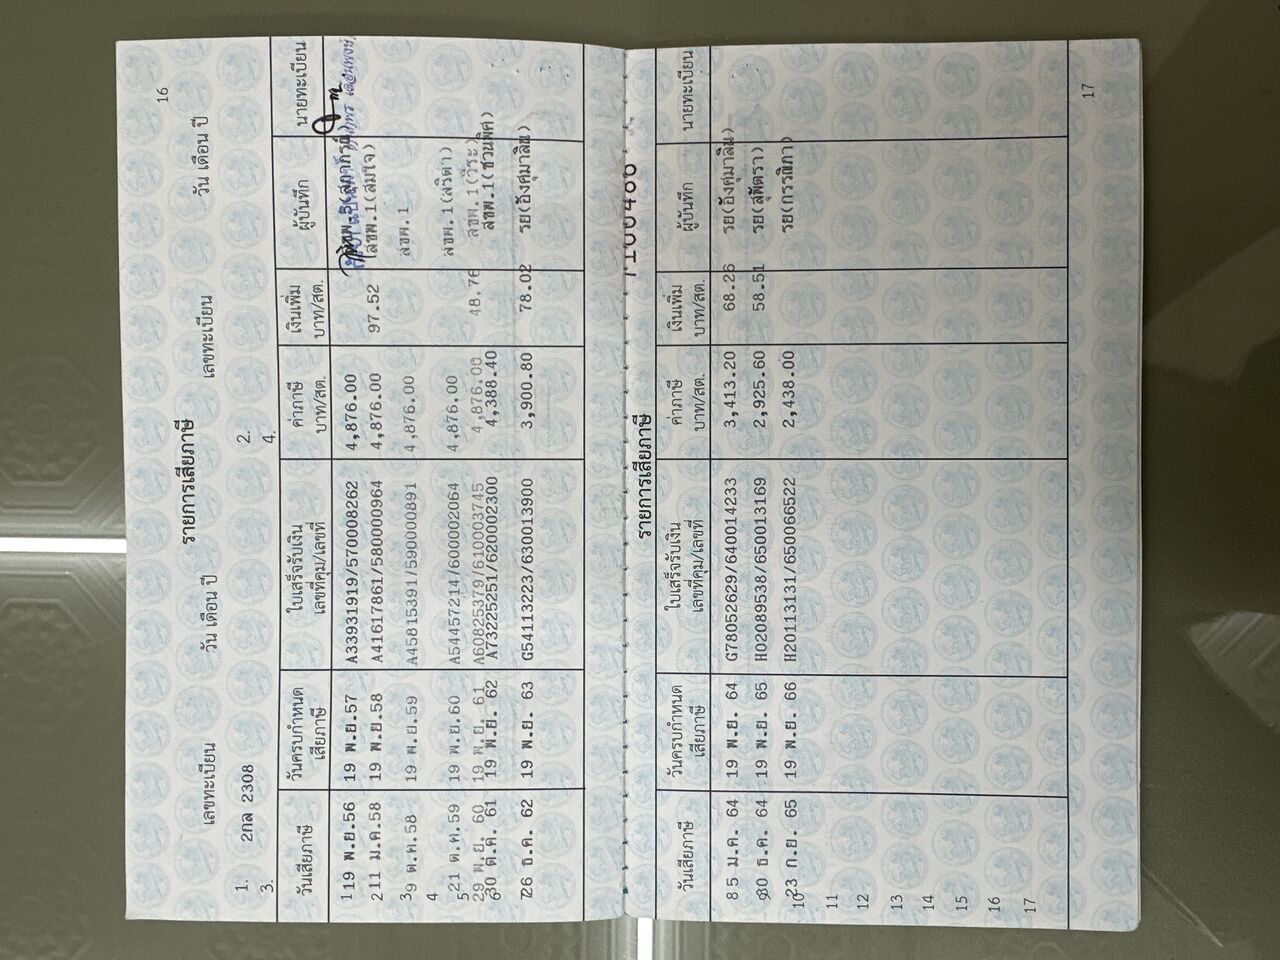 16
รายการเสียภาษี
เลขทะเบียน วัน เดือน ปี เลขทะเบียน วัน เดือน ปี
1. 2กล 2308 2.
3. 4.
วันเสียภาษี วันครบกำหนดเสียภาษี ใบเสร็จรับเงิน เลขที่คุม/เลขที่ ค่าภาษี บาท/สต. เงินเพิ่ม บาท/สต. ผู้บันทึก นายทะเบียน
1 19 พ.ย.56 19 พ.ย.57 A33931919/570008262 4,876.00
2 11 ม.ค.58 19 พ.ย.58 A41617861/580000964 4,876.00 97.52 สขพ.1(สมใจ)
3 9 ต.ค.58 19 พ.ย.59 A45815391/590000891 4,876.00 สขพ.1
4
5 21 ต.ค.59 19 พ.ย.60 A54457214/600002064 4,876.00 สขพ.1(สริตา)
29 พ.ย. 60 19 พ.ย. 61 A60825379/610003745 4,876.00 48.76 สขพ.1(วีระ)
6 30 ต.ค. 61 19 พ.ย. 62 A73225251/620002300 4,388.40 สขพ.1(ชวนพิศ)
7 26 ธ.ค. 62 19 พ.ย. 63 G54113223/630013900 3,900.80 78.02 รย(อังคุมาลิน)
7100486
รายการเสียภาษี
วันเสียภาษี วันครบกำหนดเสียภาษี ใบเสร็จรับเงิน เลขที่คุม/เลขที่ ค่าภาษี บาท/สต. เงินเพิ่ม บาท/สต. ผู้บันทึก นายทะเบียน
8 5 ม.ค. 64 19 พ.ย. 64 G78052629/640014233 3,413.20 68.26 รย(อังคุมาลิน)
9 30 ธ.ค. 64 19 พ.ย. 65 H02089538/650013169 2,925.60 58.51 รย(สุพัตรา)
10 23 ก.ย. 65 19 พ.ย. 66 H20113131/650066522 2,438.00 รย(กรรณิกา)
11
12
13
14
15
16
17
17